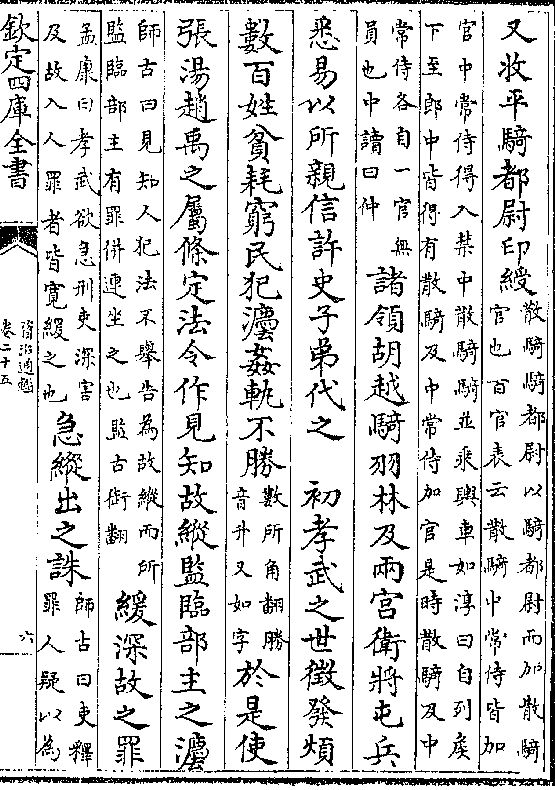 又收平騎都尉印綬散騎都尉以騎都尉而加散騎
官也百官表云散騎中常侍皆加
官中常侍得入禁中散騎騎並乘輿車如淳曰自列侯
下至郎中皆得有散騎及中常侍加官是時散騎及中
常侍各自一官無
員也中讀曰仲諸領胡越騎羽林及兩宮衛將屯兵
悉易以所親信許史子弟代之 初孝武之世徵發煩
數百姓貧耗窮民犯灋姦軌不勝數所角翻勝
音升又如字於是使
張湯趙禹之屬條定法令作見知故縱監臨部主之灋
師古曰見知人犯法不舉告為故縱而所
監臨部主有罪併連坐之也監古銜翻緩深故之罪
孟康曰孝武欲急刑吏深害
及故入人罪者皆寬緩之也急縱出之誅師古曰吏釋
罪人疑以為
欽定四庫全書
資治通鑑
卷二十五
六